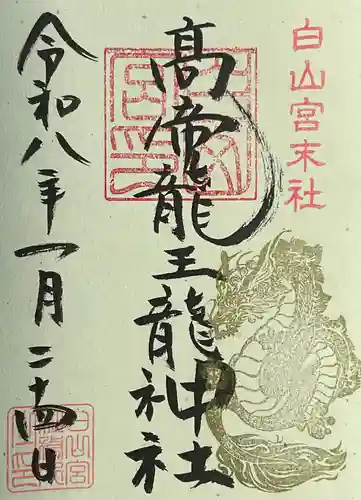 白山宮末社
高帝龍王龍神社
令和八年一月二十四日
白山宮